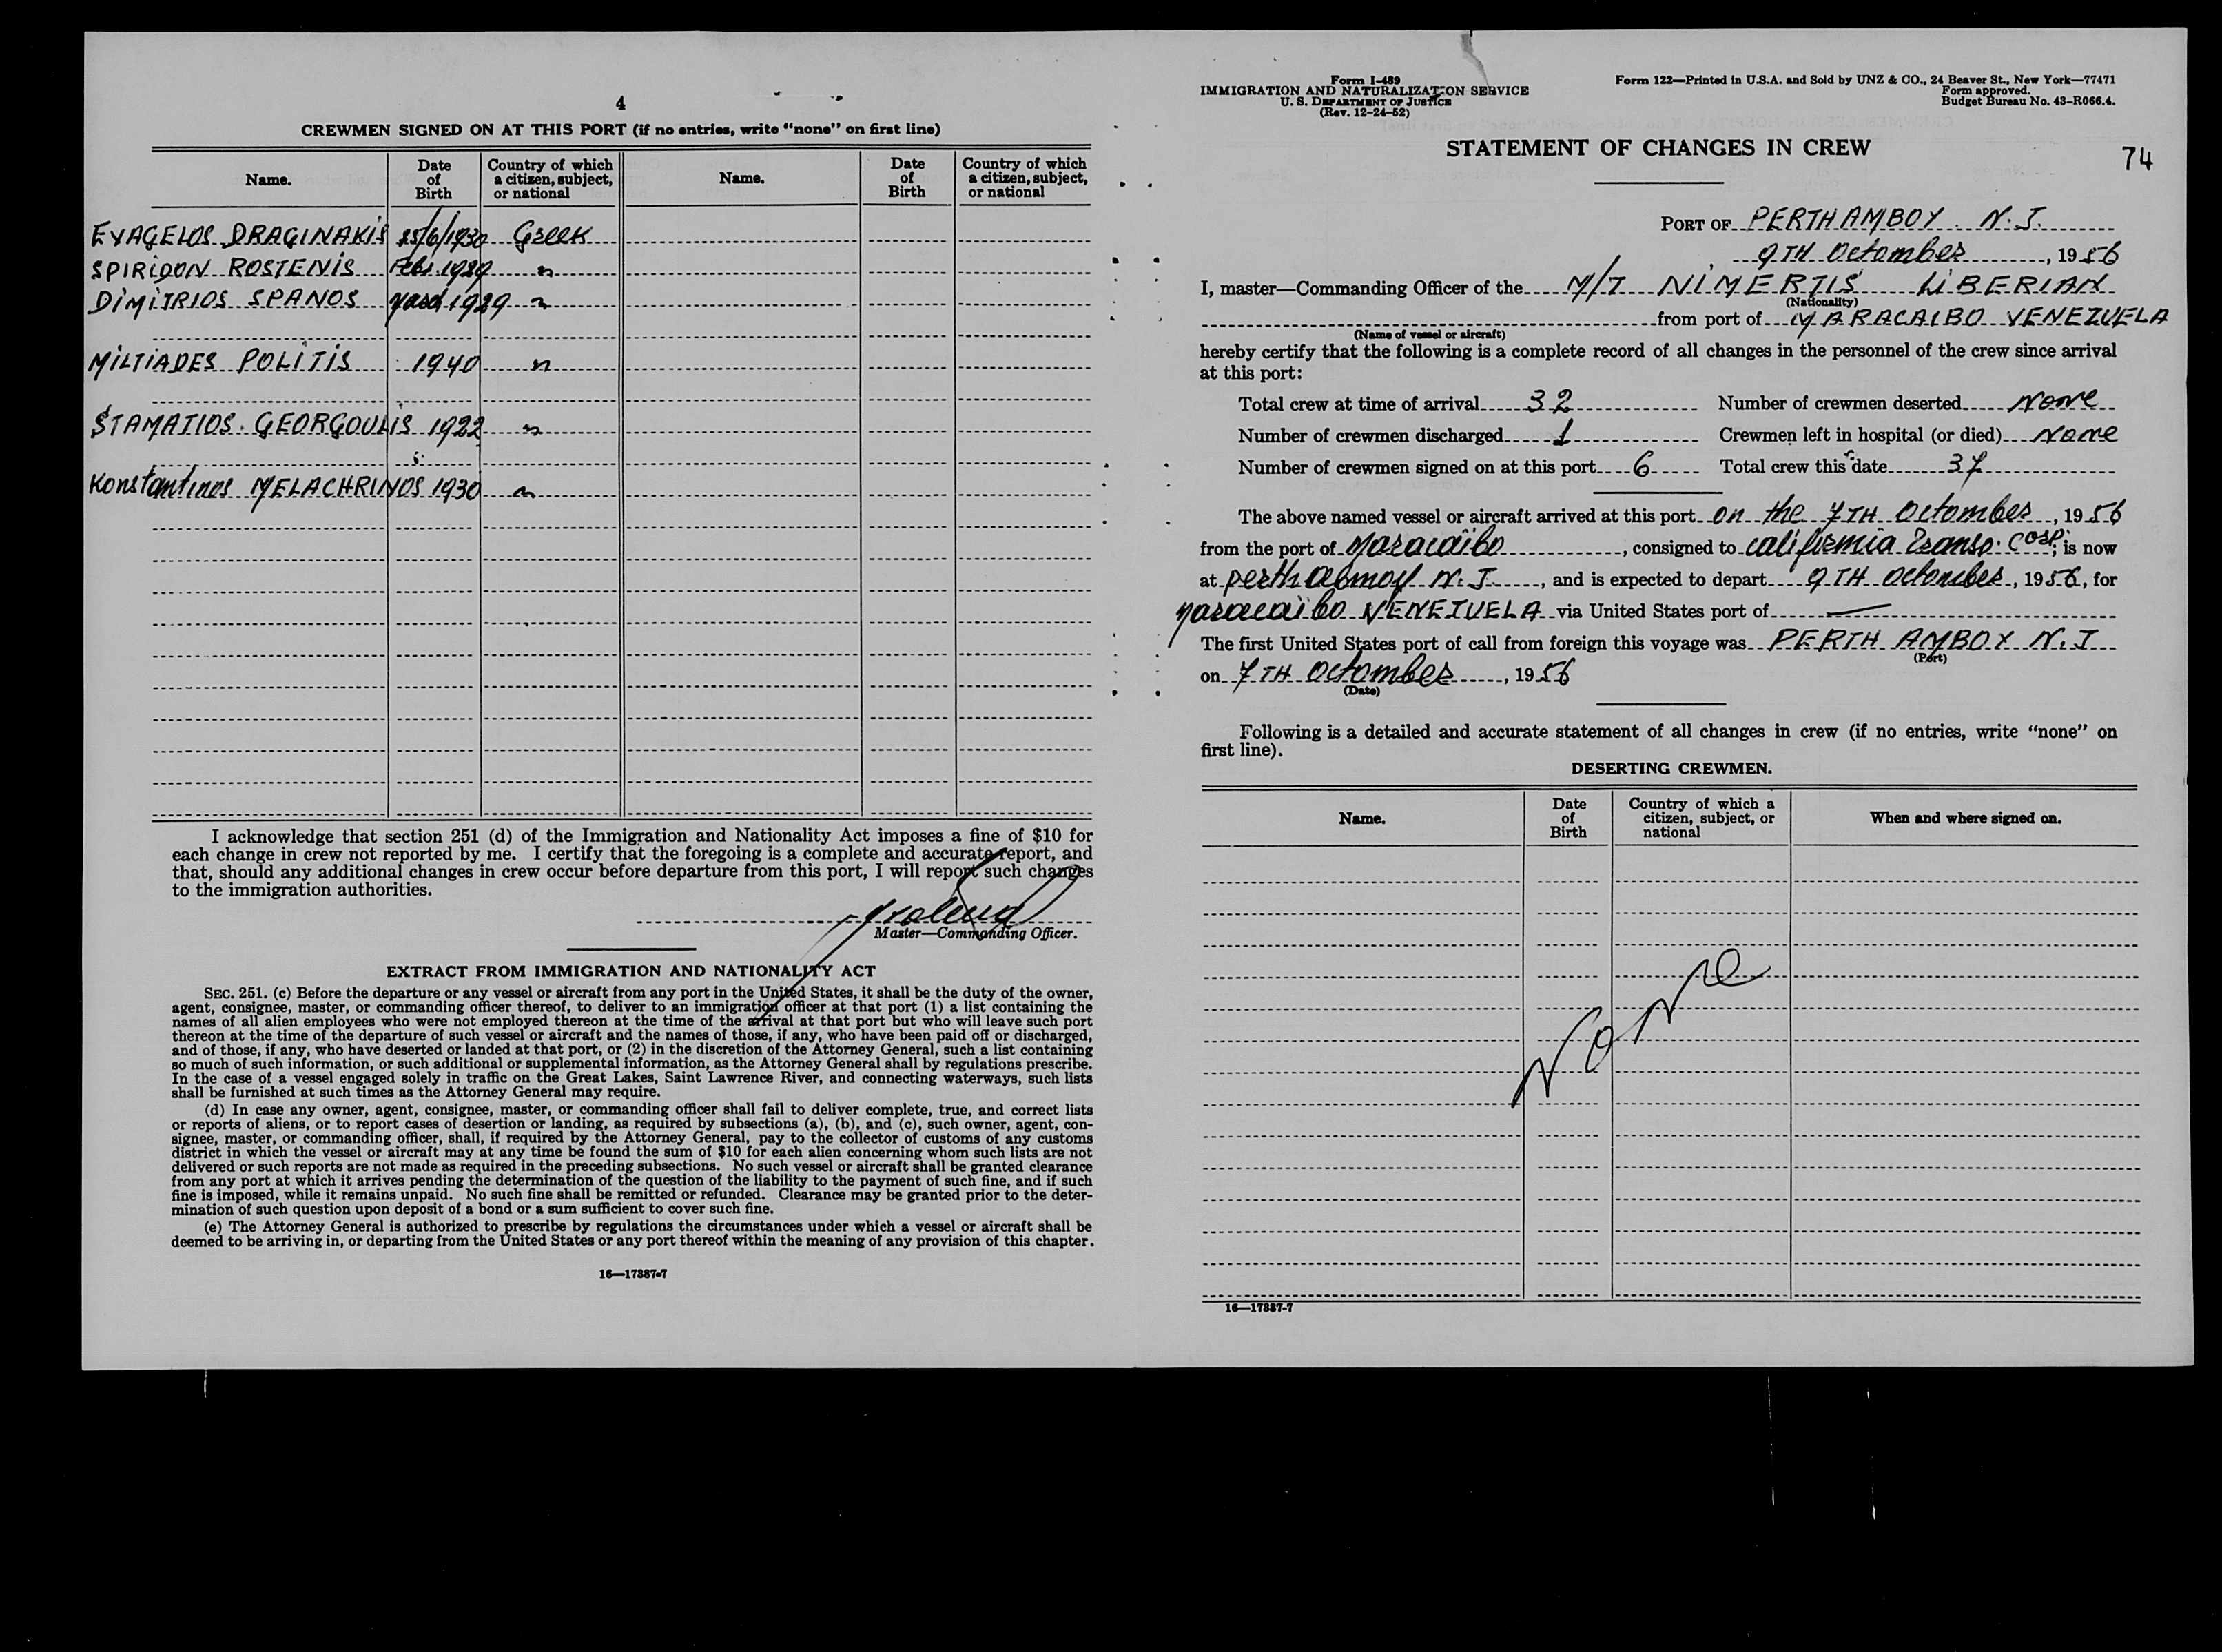 4
CREWMEN SIGNED ON AT THIS PORT (if no entries, write “none” on first line)
Name. Date of Birth Country of which a citizen, subject, or national Name. Date of Birth Country of which a citizen, subject, or national
EVAGELOS DRAGINAKIS 25/6/1930 Greek
SPIRIDON ROSTENIS Feb. 1929 "
DIMITRIOS SPANOS 1929 "
MILTIADES POLITIS 1940 "
STAMATIOS GEORGOULIS 1922 "
Konstantinos MELACHRINOS 1930 "
I acknowledge that section 251 (d) of the Immigration and Nationality Act imposes a fine of $10 for
each change in crew not reported by me. I certify that the foregoing is a complete and accurate report, and
that, should any additional changes in crew occur before departure from this port, I will report such changes
to the immigration authorities.
Master—Commanding Officer.
EXTRACT FROM IMMIGRATION AND NATIONALITY ACT
SEC. 251. (c) Before the departure or any vessel or aircraft from any port in the United States, it shall be the duty of the owner,
agent, consignee, master, or commanding officer thereof, to deliver to an immigration officer at that port (1) a list containing the
names of all alien employees who were not employed thereon at the time of the arrival at that port but who will leave such port
thereon at the time of the departure of such vessel or aircraft and the names of those, if any, who have been paid off or discharged,
and of those, if any, who have deserted or landed at that port, or (2) in the discretion of the Attorney General, such a list containing
so much of such information, or such additional or supplemental information, as the Attorney General shall by regulations prescribe.
In the case of a vessel engaged solely in traffic on the Great Lakes, Saint Lawrence River, and connecting waterways, such lists
shall be furnished at such times as the Attorney General may require.
(d) In case any owner, agent, consignee, master, or commanding officer shall fail to deliver complete, true, and correct lists
or reports of aliens, or to report cases of desertion or landing, as required by subsections (a), (b), and (c), such owner, agent, con-
signee, master, or commanding officer, shall, if required by the Attorney General, pay to the collector of customs of any customs
district in which the vessel or aircraft may at any time be found the sum of $10 for each alien concerning whom such lists are not
delivered or such reports are not made as required in the preceding subsections. No such vessel or aircraft shall be granted clearance
from any port at which it arrives pending the determination of the question of the liability to the payment of such fine, and if such
fine is imposed, while it remains unpaid. No such fine shall be remitted or refunded. Clearance may be granted prior to the deter-
mination of such question upon deposit of a bond or a sum sufficient to cover such fine.
(e) The Attorney General is authorized to prescribe by regulations the circumstances under which a vessel or aircraft shall be
deemed to be arriving in, or departing from the United States or any port thereof within the meaning of any provision of this chapter.
16—17887-7
Form I-489
IMMIGRATION AND NATURALIZATION SERVICE
U. S. DEPARTMENT OF JUSTICE
(Rev. 12-24-52)
Form 122—Printed in U.S.A. and Sold by UNZ & CO., 24 Beaver St., New York—77471
Form approved.
Budget Bureau No. 43-R066.4.
STATEMENT OF CHANGES IN CREW
74
PORT OF PERTH AMBOY N.J.
9TH Octomber, 1956
I, master—Commanding Officer of the M/T NIMERTIS LIBERIAN
(Nationality)
from port of MARACAIBO VENEZUELA
(Name of vessel or aircraft)
hereby certify that the following is a complete record of all changes in the personnel of the crew since arrival
at this port:
Total crew at time of arrival 32 Number of crewmen deserted None
Number of crewmen discharged 1 Crewmen left in hospital (or died) None
Number of crewmen signed on at this port 6 Total crew this date 37
The above named vessel or aircraft arrived at this port on the 7TH Octomber, 1956
from the port of Maracaibo, consigned to California Transp. Corp; is now
at perth N.J., and is expected to depart 9TH Octomber, 1956, for
Maracaibo VENEZUELA via United States port of —
The first United States port of call from foreign this voyage was PERTH AMBOY N.J
(Port)
on 7TH Octomber, 1956
(Date)
Following is a detailed and accurate statement of all changes in crew (if no entries, write “none” on
first line).
DESERTING CREWMEN.
Name. Date of Birth Country of which a citizen, subject, or national When and where signed on.
None
16—17887-7